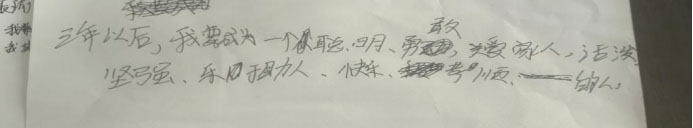 三年以后，我要成为一个聪明、勇敢，关爱家人，活泼
坚强、乐于助人、快乐、孝顺、的人。